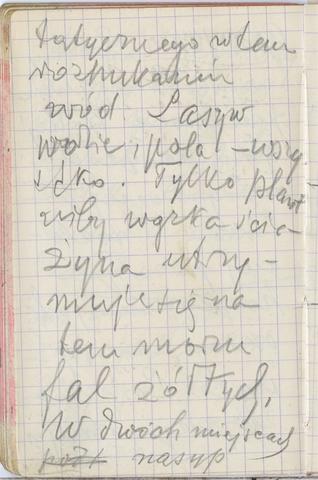 tatycznego w tem
rozpukaniu
wód Lasy w
wodzie, pola – wszy
stko. Tylko plant
niby wązka ście-
żyna utrzy-
muje się na
tem morzu
fal żółtych,
W dwóch miejscach
nasyp